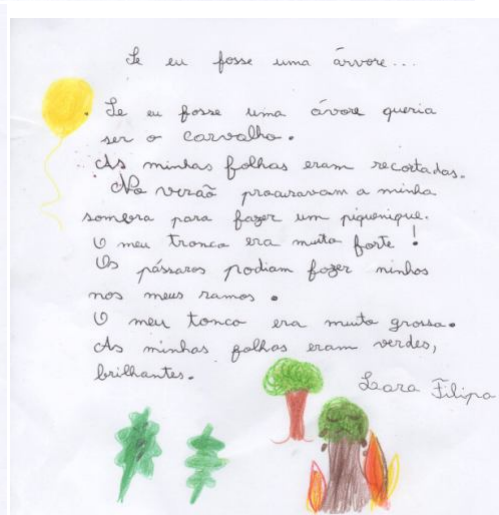 Se eu fosse uma árvore...
Se eu fosse uma ávore queria
ser o carvalho.
As minhas folhas eram recortadas.
No verão procuravam a minha
sombra para fazer um piquenique.
O meu tronco era muito forte!
Os pássaros podiam fazer ninhos
nos meus ramos.
O meu tonco era muito grosso.
As minhas folhas eram verdes,
brilhantes.
Leara Filipa